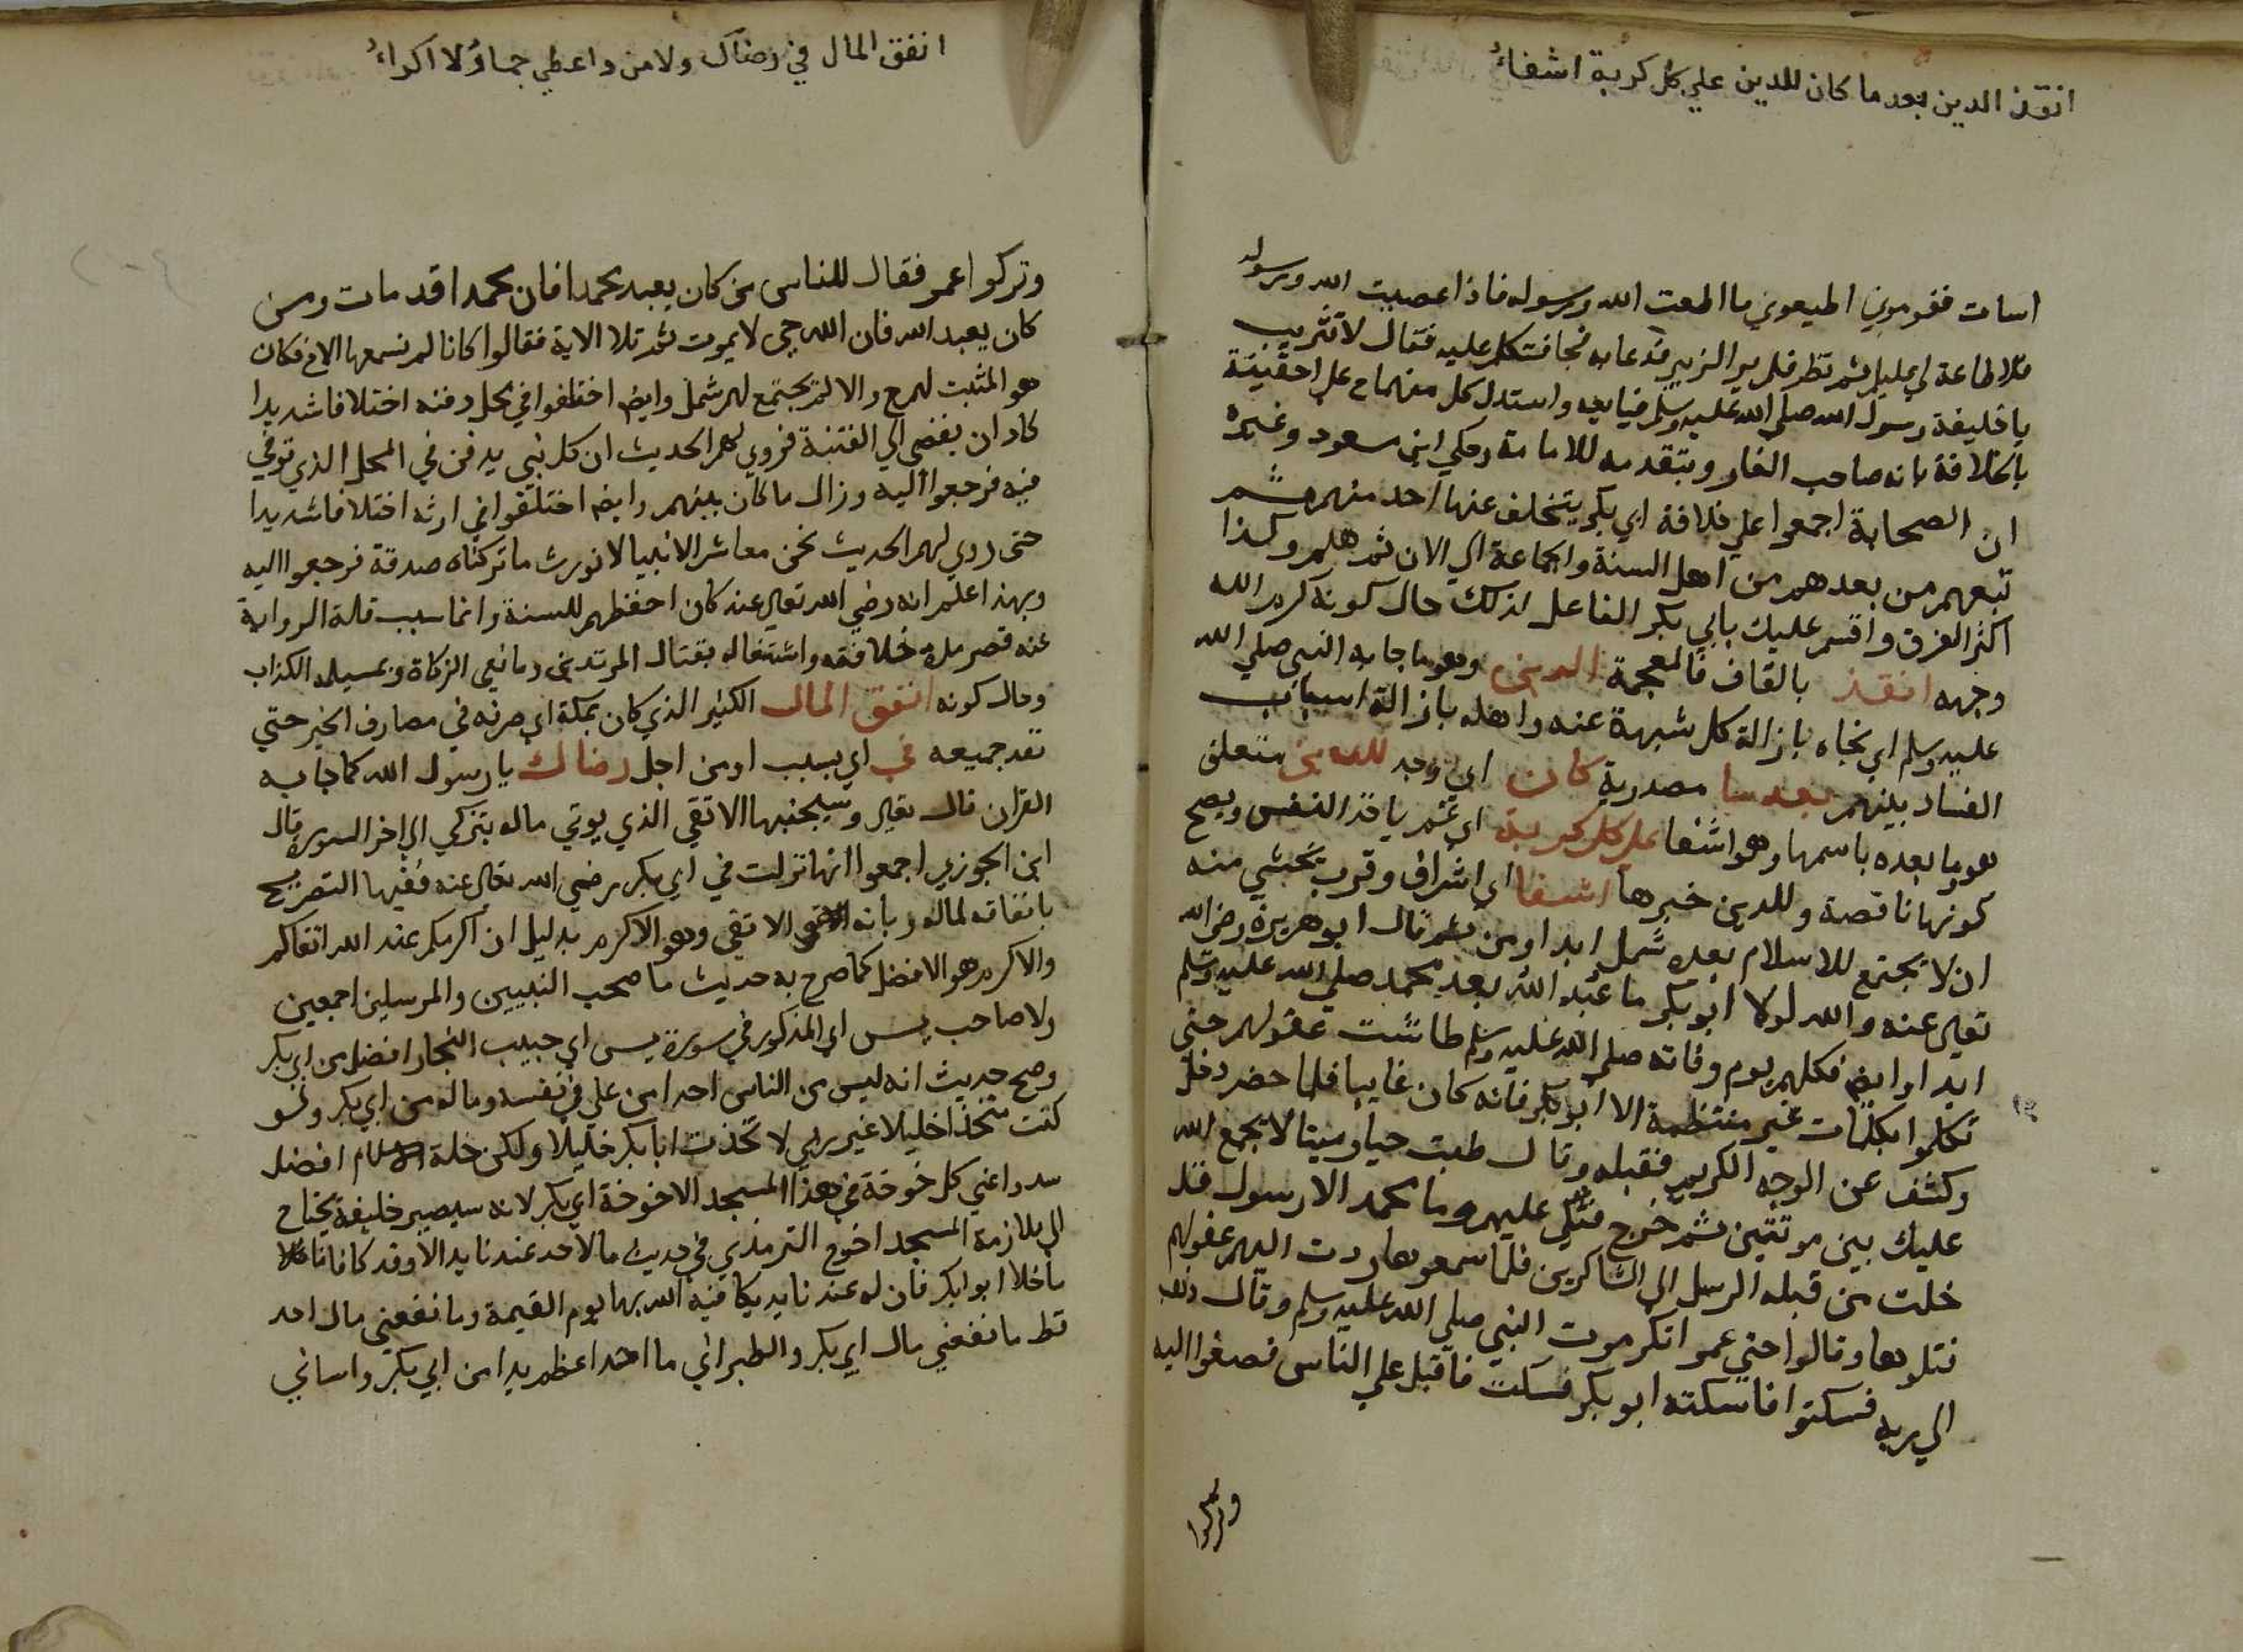 انقذ الدين بعد ما كان للدين علي كل كربة اشفاءُ
اسات فقوموني اطيعوني ما اطعت الله ورسوله فاذا عصيت الله ورسوله
فلا طاعة لي عليكم ثم نظر فلم ير الزبير فدعا به فجا فتنكر عليه فقال لا تثريب
يا خليفة رسول الله صلي الله عليه وسلم فبايعه واستدل كل منهما علي احقيته
بالخلافة بانه صاحب الغار وبتقدمه للامامة وحكي ابن مسعود وغيره
ان الصحابة اجمعوا علي خلافة ابي بكر يتخلف عنها احد منهم ثم
تبعهم من بعدهم من اهل السنة والجماعة الي الان ثم هلم وكذا
اكثر الفرق واقسم عليك بابي بكر الفاعل لذلك حال كونه كرم الله
وجهه انقذ بالقاف فالمعجمة الدين وهو ما جا به النبي صلي الله
عليه وسلم اي نجاه بازالة كل شبهة عنه واهله بازالة اسباب
الفساد بينهم بعد ما مصدرية كان اي وجد للدين متعلق
هو وما بعده باسمها وهو اشفا علي كل كربة اي غم ياخذ النفس ويصح
كونها ناقصة وللدين خبرها اشفا اي اشراف وقرب يخشي منه
ان لا تجتمع للاسلام بعده شمل ابدا ومن ثم قال ابو هريرة رضي الله
تعالي عنه والله لولا ابو بكر ما عُبد الله بعد محمد صلي الله عليه وسلم
ابدا وايضا فكلهم يوم وفاته صلي الله عليه وسلم طاشت عقولهم حتي
تكلموا بكلمات غير منتظمة الا ابو بكر فانه كان غايبا فلما حضر دخل
وكشف عن الوجه الكريم فقبله وقال طبت حيا وميتا لا يجمع الله
عليك بين موتتين ثم خرج فتلي عليهم وما محمد الا رسول قد
خلت من قبله الرسل الي الشاكرين فلما سمعوها ردت اليهم عقولهم
فتلوها وقالوا حتي عمر انكر موت النبي صلي الله عليه وسلم وقال ذهب
الي ربه فسكتوا فاسكته ابو بكر فسكت فاقبل علي الناس فصغوا اليه
وتركوا
انفق المال في رضاك ولا من واعطي جما ولا اكداءُ
وتركوا عمر فقال للناس من كان يعبد محمدا فان محمدا قد مات ومن
كان يعبد الله فان الله حي لا يموت ثم تلا الاية فقالوا كانا لم نسمعها الا الان فكان
هو المثبت لهم والا لم تجتمع لهم شمل وايضا اختلفوا في محل دفنه اختلافا شديدا
كاد ان يفضي الي الفتنة فروي لهم الحديث ان كل نبي يدفن في المحل الذي توفي
فيه فرجعوا اليه وزال ما كان بينهم وايضا اختلفوا في ارثه اختلافا شديدا
حتي روي لهم الحديث نحن معاشر الانبيا لا نورث ما تركناه صدقة فرجعوا اليه
وبهذا اعلم انه رضي الله تعالي عنه كان احفظهم للسنة وانما سبب قلة الرواية
عنه قصر مدة خلافته واشتغاله بقتال المرتدين ومانعي الزكاة وبمسيلمة الكذاب
وحال كونه انفق المال الكثير الذي كان بمكة اي صرفه في مصارف الخير حتي
نفد جميعه في اي بسبب او من اجل رضاك يا رسول الله كما جا به
القران قال تعالي وسيجنبها الاتقي الذي يوتي ماله يتزكي الي اخر السورة قال
ابن الجوزي اجمعوا انها نزلت في ابي بكر رضي الله تعالي عنه ففيها التصريح
بانفاقه لماله وبانه الاتقي وهو الاكرم بدليل ان اكرمكم عند الله اتقاكم
والاكرم هو الافضل كما صرح به حديث ما صحب النبيين والمرسلين اجمعين
ولا صاحب يس اي المذكور في سورة يس اي حبيب النجار افضل من ابي بكر
وصح حديث انه ليس من الناس احد امن علي في نفسه وماله من ابي بكر ولو
كنت متخذا خليلا غير ربي لا تخذت ابا بكر خليلا ولكن خلة الاسلام افضل
سدوا عني كل خوخة في هذا المسجد الا خوخة ابي بكر لانه سيصير خليفة يحتاج
الي ملازمة المسجد اخرج الترمذي في حديث ما لاحد عندنا يد الا وقد كافاناه
ما خلا ابو ابكر فان له عندنا يد يكافيه الله بها يوم القيمة وما نفعني مال احد
قط ما نفعني مال ابي بكر والطبراني ما احد اعظم يدا من ابي بكر واساني